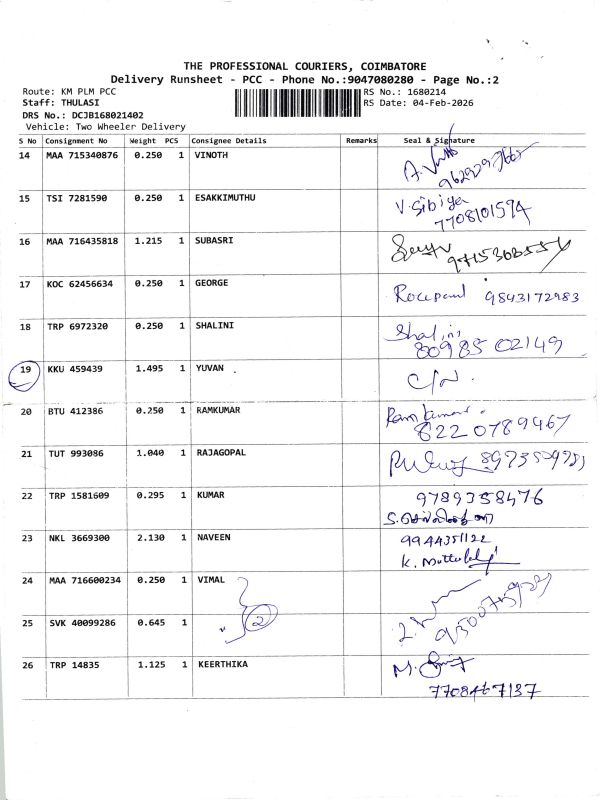 THE PROFESSIONAL COURIERS, COIMBATORE
Delivery Runsheet - PCC - Phone No.:9047080280 - Page No.:2
Route: KM PLM PCC
Staff: THULASI
DRS No.: DCJB168021402
Vehicle: Two Wheeler Delivery
RS No.: 1680214
RS Date: 04-Feb-2026
S No Consignment No Weight PCS Consignee Details Remarks Seal & Signature
14 MAA 715340876 0.250 1 VINOTH
15 TSI 7281590 0.250 1 ESAKKIMUTHU V. Sibiya
7708101594
16 MAA 716435818 1.215 1 SUBASRI
17 KOC 62456634 0.250 1 GEORGE 9843172983
18 TRP 6972320 0.250 1 SHALINI Shalini
80985 02149
19 KKU 459439 1.495 1 YUVAN
20 BTU 412386 0.250 1 RAMKUMAR Ramkumar
8220789467
21 TUT 993086 1.040 1 RAJAGOPAL
22 TRP 1581609 0.295 1 KUMAR 9789358476
23 NKL 3669300 2.130 1 NAVEEN 9944351122
24 MAA 716600234 0.250 1 VIMAL
2
25 SVK 40099286 0.645 1
26 TRP 14835 1.125 1 KEERTHIKA
7708467137